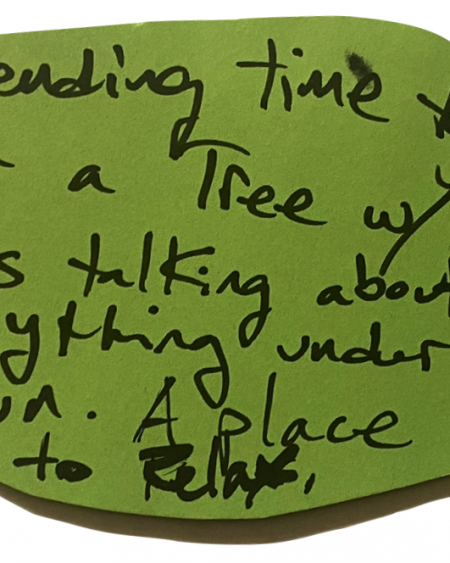 ending time
a Tree w/
s talking about
ything under
un. A place
to Relax.